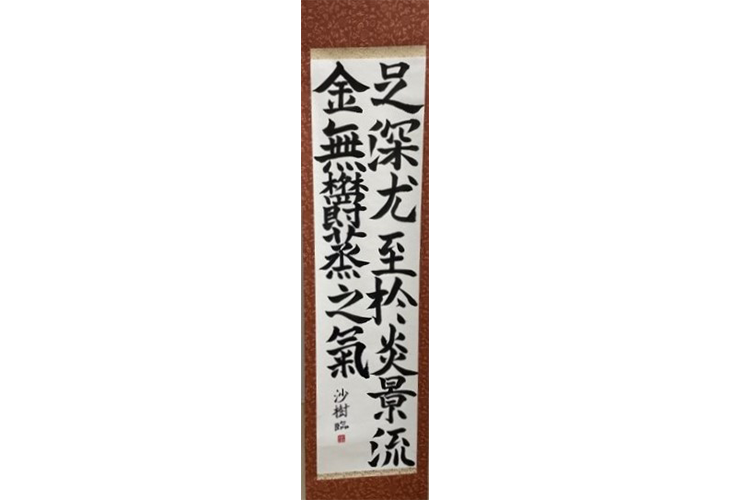 足深尤至於炎景流
金無欝蒸之氣
沙樹臨